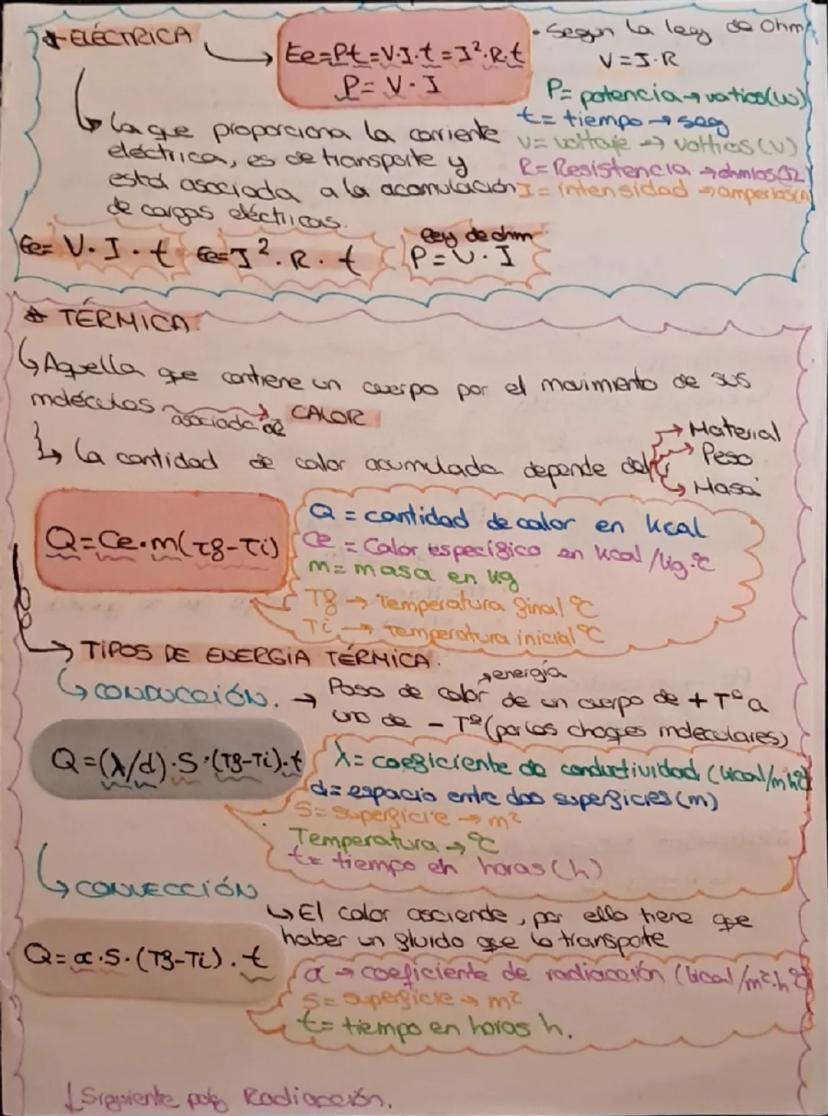 * ELÉCTRICA
Ee=Pt=V·I·t=I²·R·t
P=V·I
• Según la ley de Ohm
V=I·R
P= potencia→vatios(W)
t=tiempo→seg
V=voltaje→voltios(V)
R=Resistencia→ohmios Ω
I=intensidad→amperios(A)
↳ La que proporciona la corriente
eléctrica, es de transporte y
está asociada a la acomulación
de cargas eléctricas.
Ee= V·I·t Ee=I²·R·t
ley de ohm
P=V·I
* TÉRMICA
↳ Aquella que contiene un cuerpo por el movimiento de sus
moléculas asociada de CALOR
↳ La cantidad de calor acumulada depende del
→ Material
→ Peso
→ Masa
Q=Ce·m(Tf-Ti)
Q = cantidad de calor en kcal
Ce = Calor específico en kcal/kg·ºC
m= masa en kg
Tf → Temperatura final ºC
Ti → Temperatura inicial ºC
→ TIPOS DE ENERGIA TÉRMICA.
↳ CONDUCCIÓN. → Paso de calor de un cuerpo de + Tº a
→energía
uno de - Tº (por los choques moleculares)
Q=(λ/d)·S·(Tf-Ti)·t
λ= coeficiente de conductividad (kcal/m hºC
d= espacio entre dos superficies (m)
S= superficie → m²
Temperatura → ºC
t= tiempo en horas (h)
↳ CONVECCIÓN
↳ El calor asciende, por ello tiene que
haber un fluido que lo transporte
Q=α·S·(Tf-Ti)·t
α → coeficiente de radiación (kcal/m²·hºC
S= superficie → m²
t= tiempo en horas h.
↓ Siguiente pág Radiación.